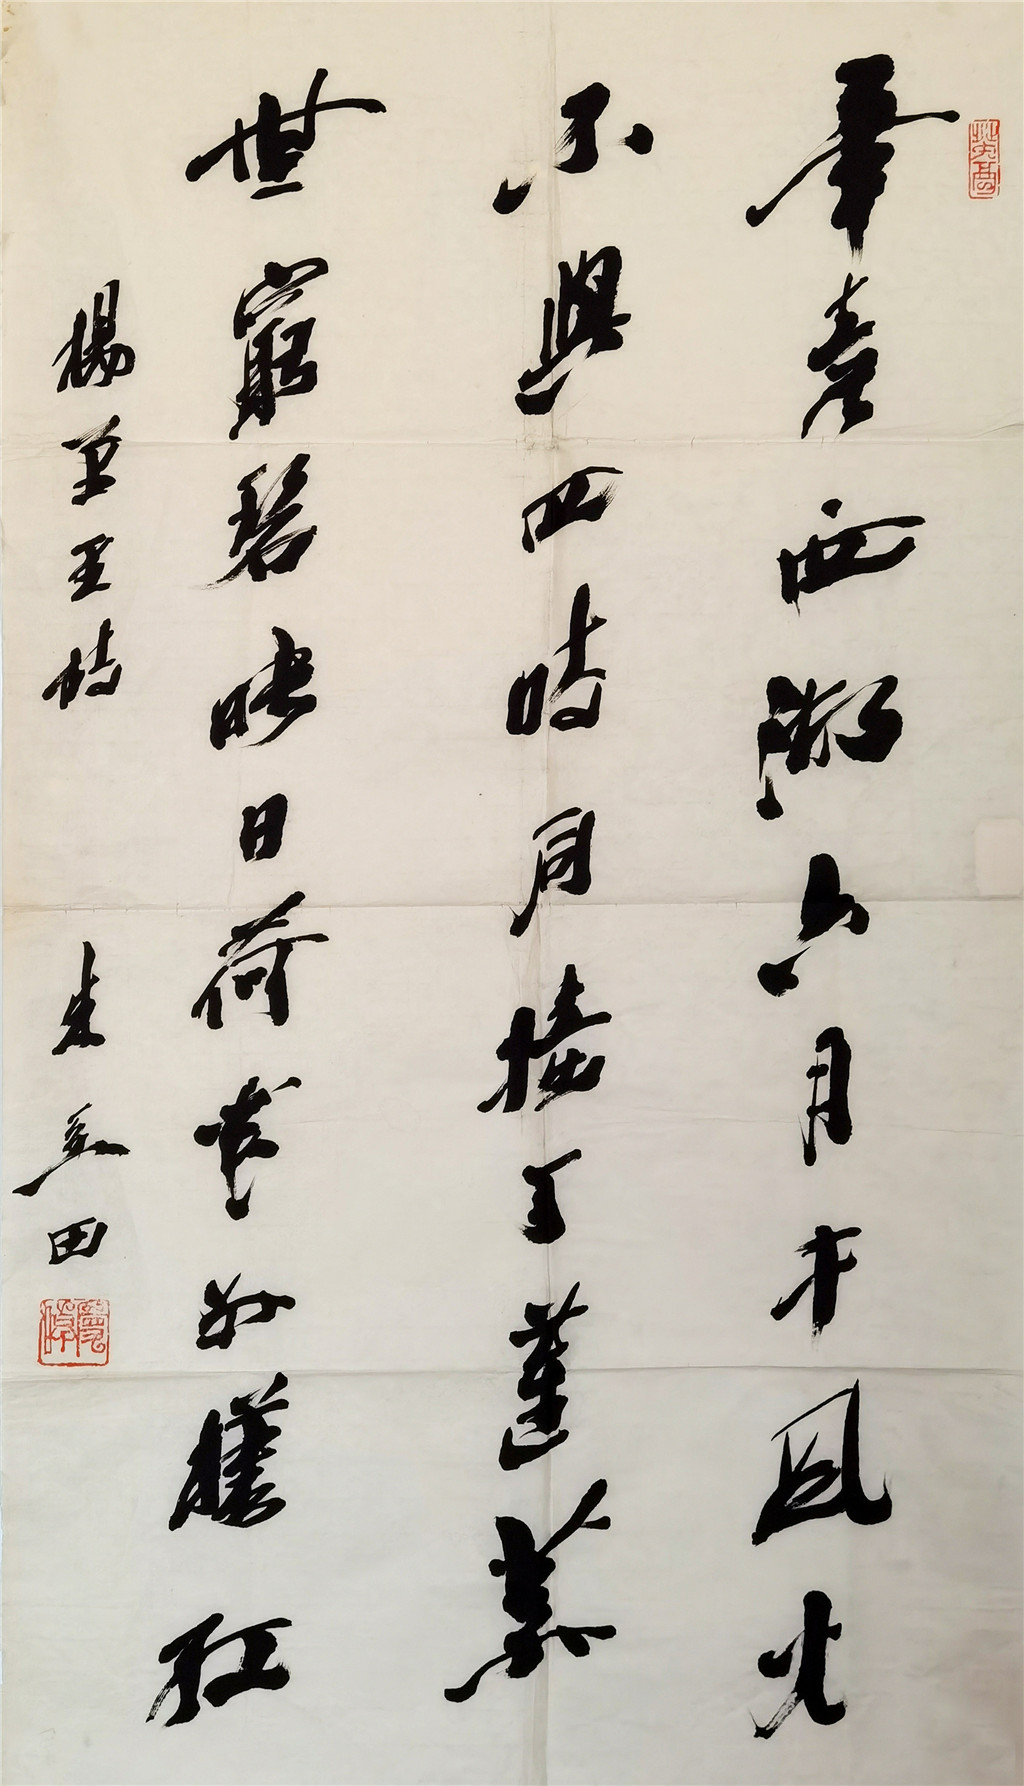 畢竟西湖六月中風光
不與四時同接天蓮葉
無窮碧映日荷花別樣紅
楊万里詩 朱 田